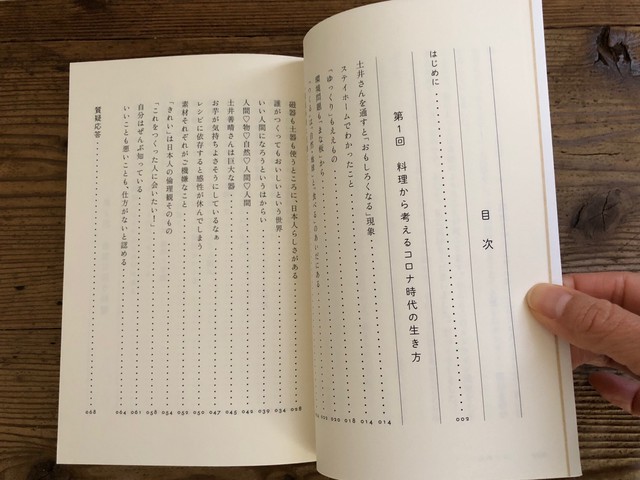 目次
はじめに 002
第1回 料理から考えるコロナ時代の生き方
土井さんを通すと「おもしろくなる」現象 014
ステイホームでわかったこと 014
「ゆっくり」もええもの 018
環境問題も、まな板から 020
磁器も土器も使うところに、日本人らしさがある 028
誰がつくってもおいしいという世界 034
いい人間になろうというはからい 039
人間♡物♡自然♡人間♡人間 042
土井善晴さんは巨大な器 045
お芋が気持ちよさそうにしているなぁ 047
レシピに依存すると感性が休んでしまう 050
素材それぞれがご機嫌なこと 052
「きれい」は日本人の倫理観そのもの 054
「これをつくった人に会いたい!」 058
自分はぜんぶ知っている 061
いいことも悪いことも、仕方がないと認める 064
質疑応答 068